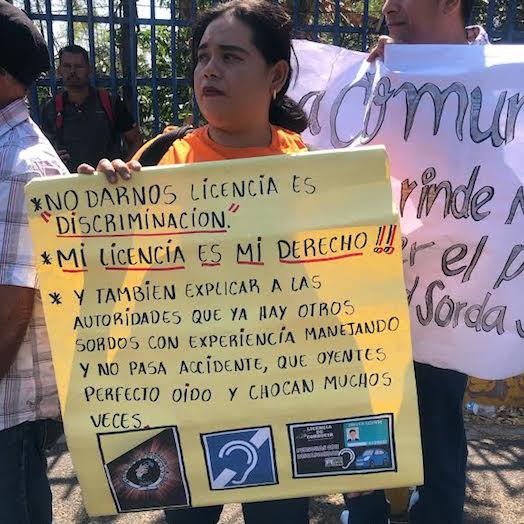 * NO DARNOS LICENCIA ES
"DISCRIMINACION."
* MI LICENCÍA ES MI DERECHO!!
* Y TAMBIEN EXPLICAR A LAS
AUTORIDADES QUE YA HAY OTROS
SORDOS CON EXPERIENCÍA MANEJANDO
Y NO PASA ACCIDENTE, QUE OYENTES
PERFECTO OIDO Y CHOCAN MUCHOS
VECES.
LICENCIA DE CONDUCIR
a comun
rinde
er el p
Sorda